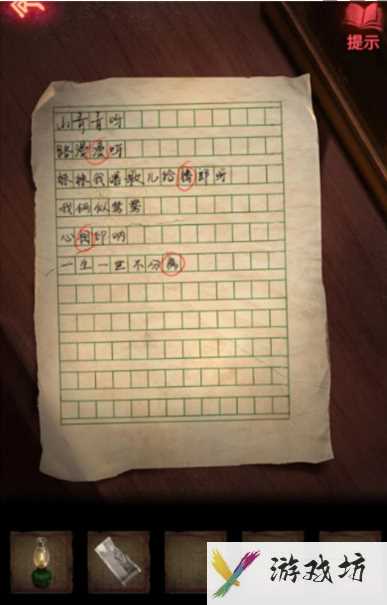 提示
小哥哥听
路漫漫呀
妹妹我唱歌儿给情郎听
我俩似鸳鸯
心
一生一世不分离
游戏坊